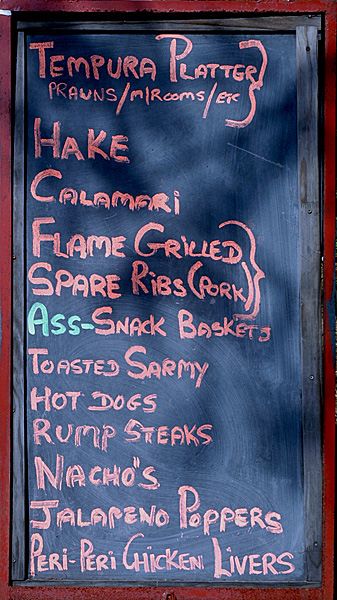 TEMPURA PLATTER
PRAWNS/M/ROOMS/ETC
HAKE
CALAMARi
FLAME GRILLED
SPARE RIBS (PORK)
ASS-SNACK BASKETS
TOASTED SARMY
HOT DOGS
RUMP STEAKS
NACHO"S
JALAPENO POPPERS
PERI-PERI CHICKEN LIVERS